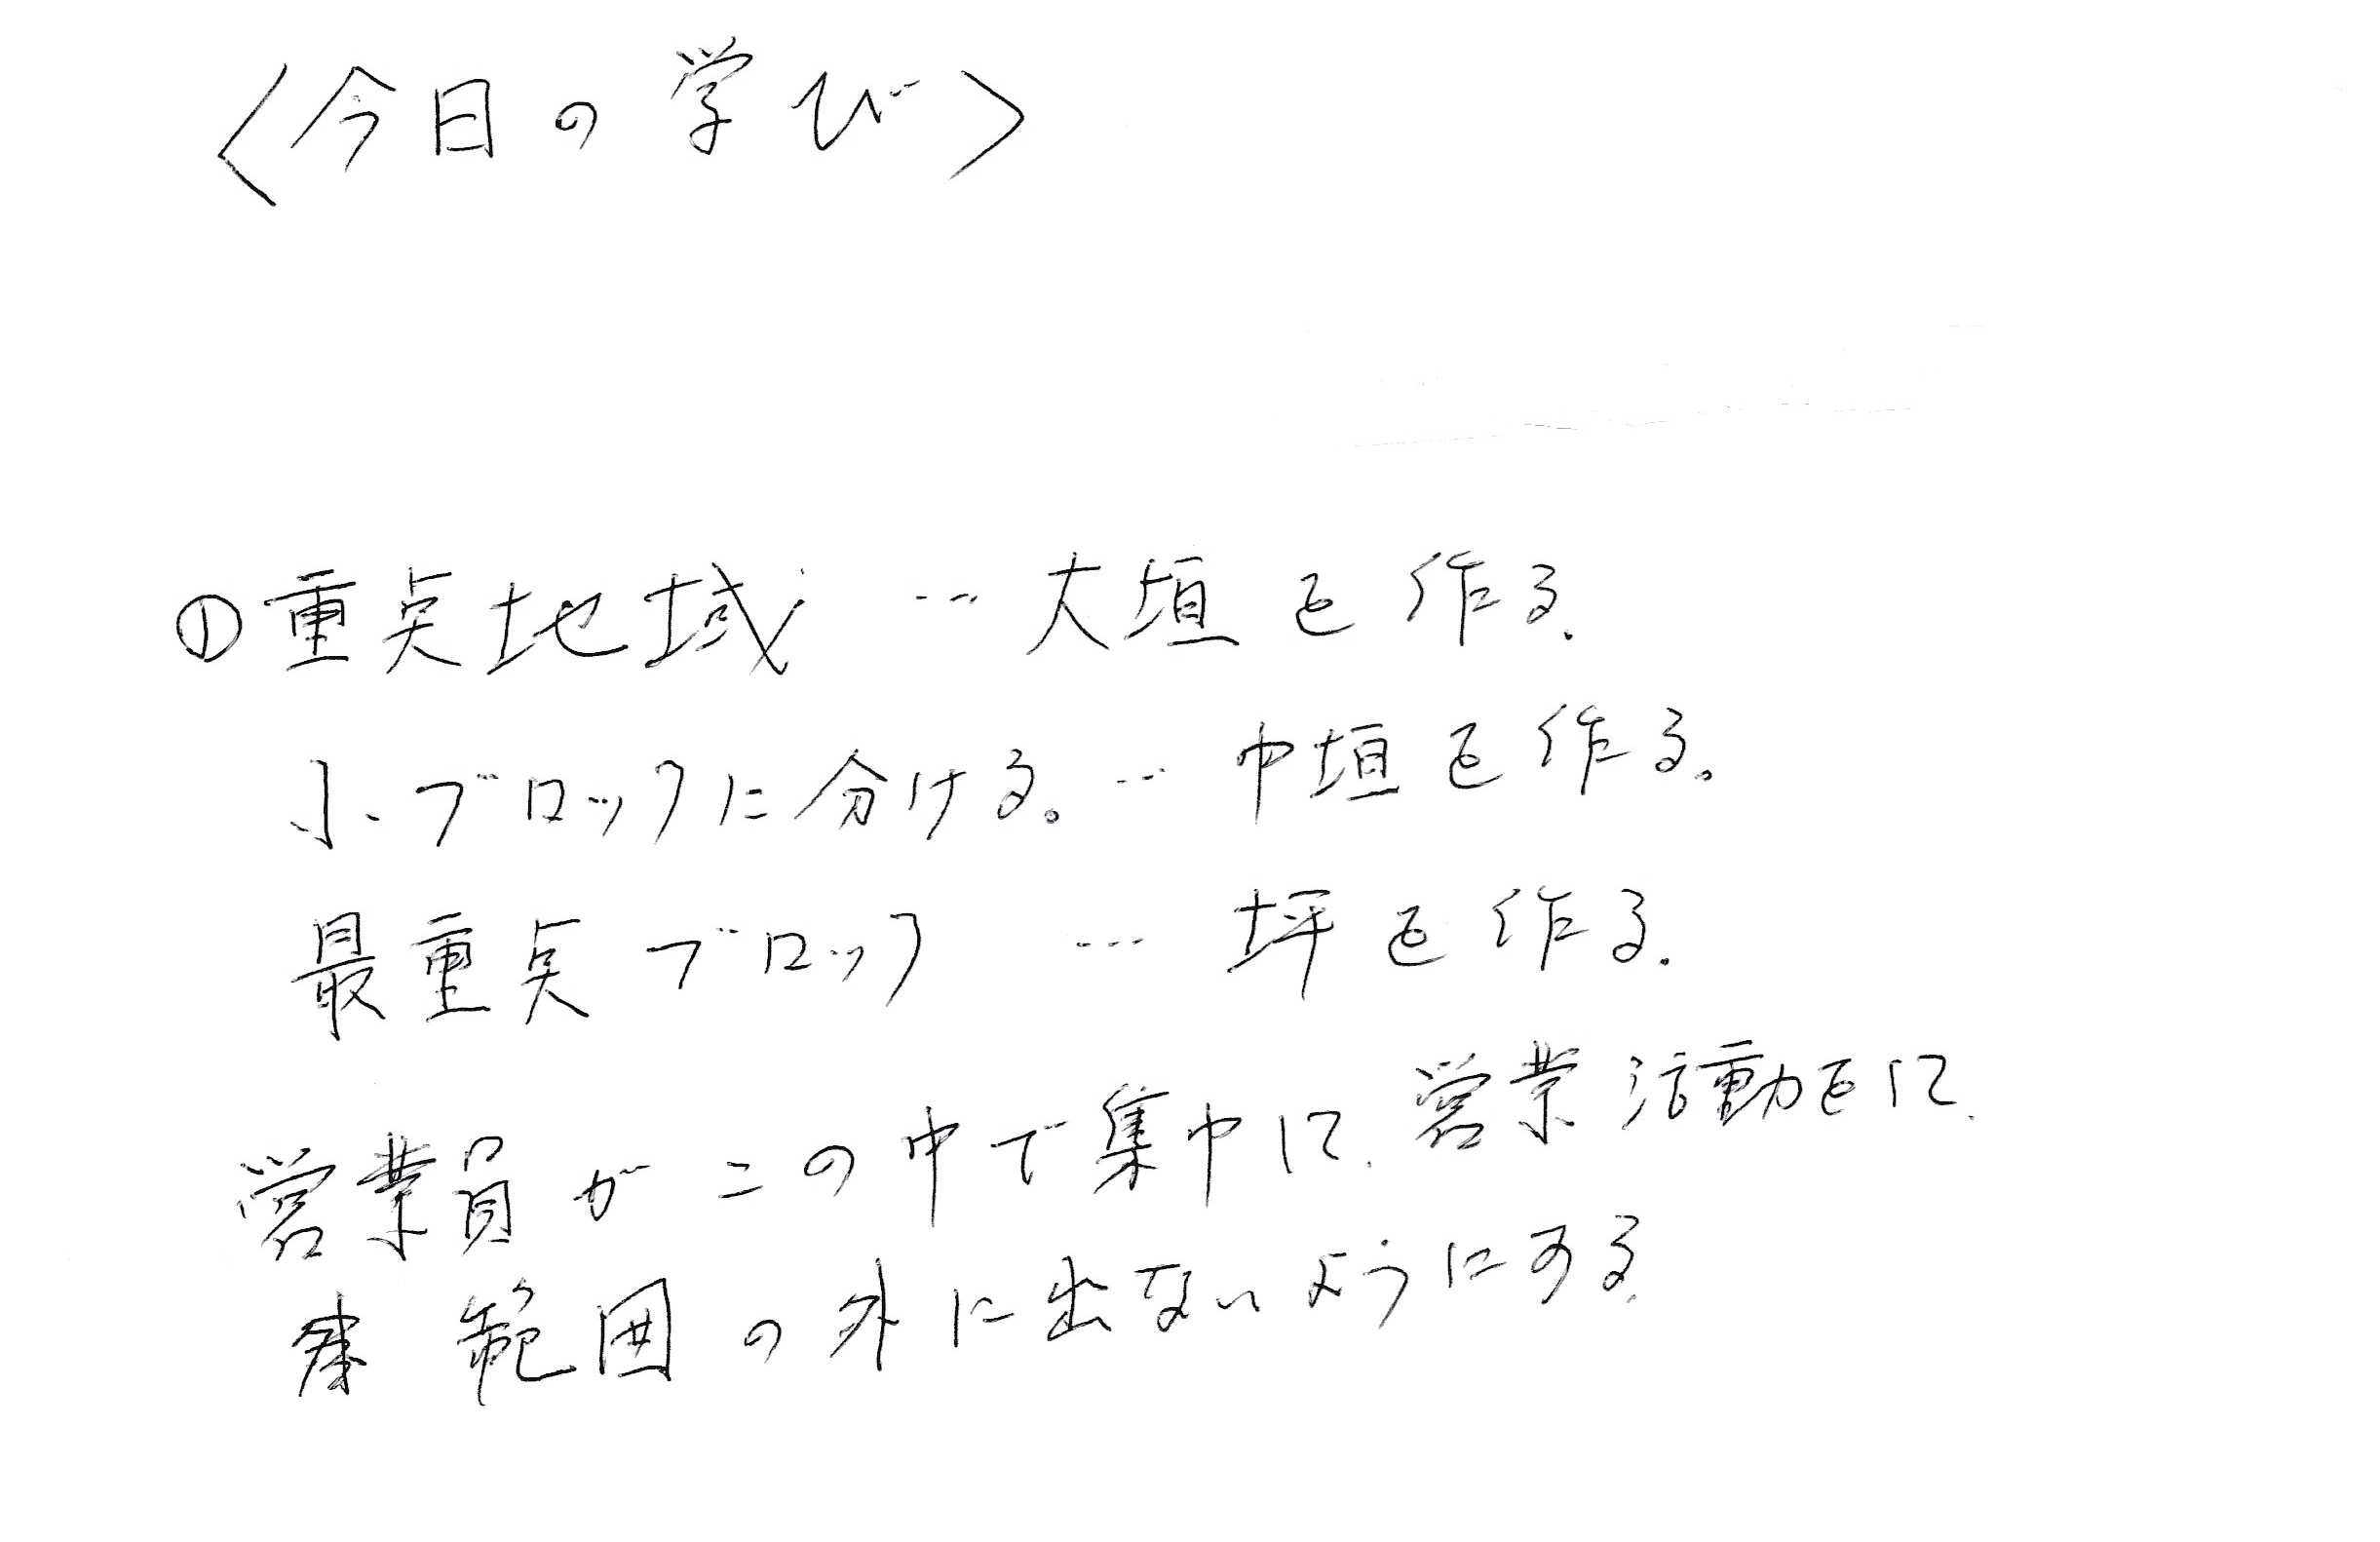 〈今日の学び〉
①重点地域 … 大垣を作る.
小ブロックに分ける。… 中垣を作る。
最重点ブロック … 坪を作る.
営業員がこの中で集中に.営業活動をに.
範囲の外に出ないようにする.